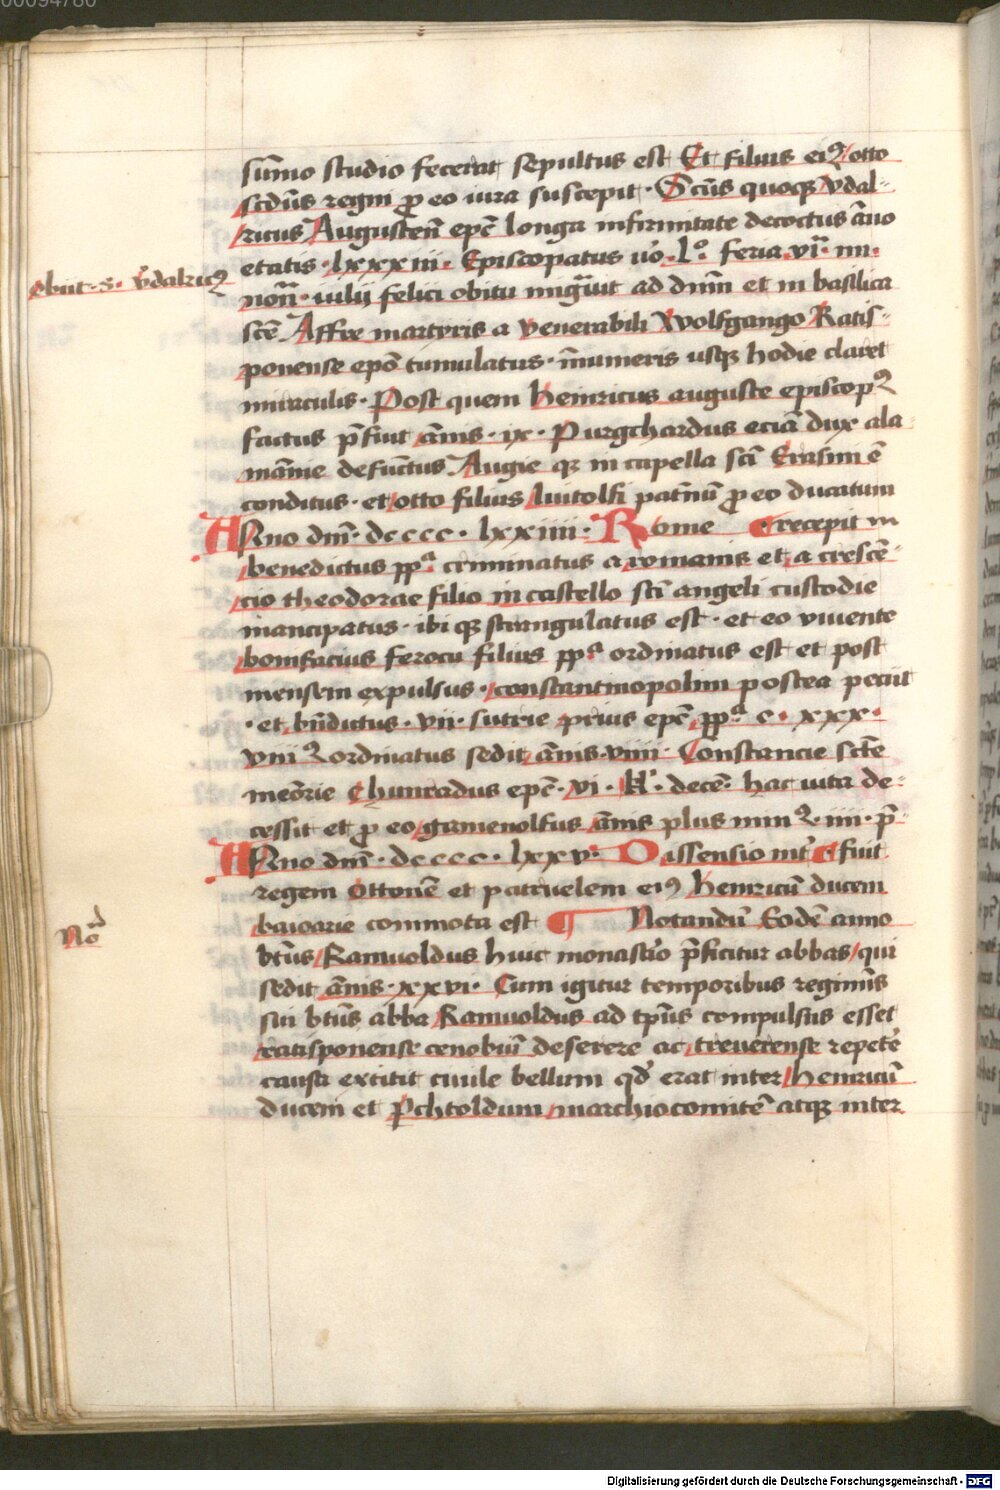 00094780
sum̄o studio fecerat sepultus est Et filius eiꝰ otto
scd̄us regni ꝓ eo iura suscepit · Sc̄us quoqꝫ vdal-
ricus Augusten̄ epc̄ longa infirmitate decoctus an̄o
etatis · lxxxiii · Episcopatus u͛o · l° · feria vi · iiii ·
Obiit · S · vdalricꝰ
non̄ · iulij felici obitu migᷓuit ad dn̄m et in basilica
sc̄e Affre martyris a venerabili Wolfgango Ratis-
ponense epō tumulatus · īnumeris usqꝫ hodie claret
miraculis · Post quem Heinricus auguste episcopꝰ
factus p̄fuit an̄is · ix · Purgchardus eciā dux ala
man̄ie defunctus Augie qꝫ in capella sc̄i Erasmi ē
conditus · et otto filius luitolfi patruū ꝓ eo ducatum
ANno dnī · dcccc · lxxiiii · Rome recepit in
benedictus pp̄ᵃ criminatus a romanis et a crescē-
cio theodorae filio in castello sc̄i angeli custodie
mancipatus · ibi qꝫ strangulatus est · et eo viuente
bonifacius ferocii filius pp̄ᵃ ordinatus est et post
mensem expulsus · constantinopolim postea peciit
· et bn̄dictus · vii · sutrie prius epc̄ pp̄ᵃ c · xxx ·
viii ꝰ ordinatus sedit an̄is · viiii · Constancie sctē
meōrie Chunradus epc̄ · vi · kl · decē · hac uita de-
cessit et ꝓ eo gamenolfus an̄is plus minꝰ · iiii · p̄-
ANno dnī · dcccc · lxxv · Dissensio int͛ fuit
regem Ottonē et patruelem eiꝰ Henricū ducem
baioarie commota est ¶ Notandū Eodē anno
Noᵈ
bt̄us Ramuoldus huic monast͛io p̄ficitur abbas qui
sedit an̄is · xxvi · Cum igitur temporibus regimīs
sui bt̄us abba Ramuoldus ad tp̄us compulsus esset
ratisponense cenobiū deserere ac treuerense repet͛e
causa extitit ciuile bellum qd̄ erat inter Henricū
ducem et Pchtoldum marchiocomitē atqꝫ inter
Digitalisierung gefördert durch die Deutsche Forschungsgemeinschaft - DFG